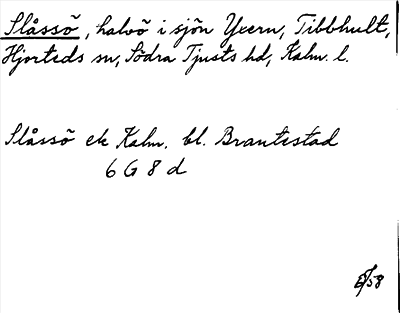 Slåssö, halvö i sjön Yxern, Tibbhult,
Hjorteds sn, Södra Tjusts hd, Kalm. l.
Slåssö ek Kalm. bl. Brantestad
6 G 8 d